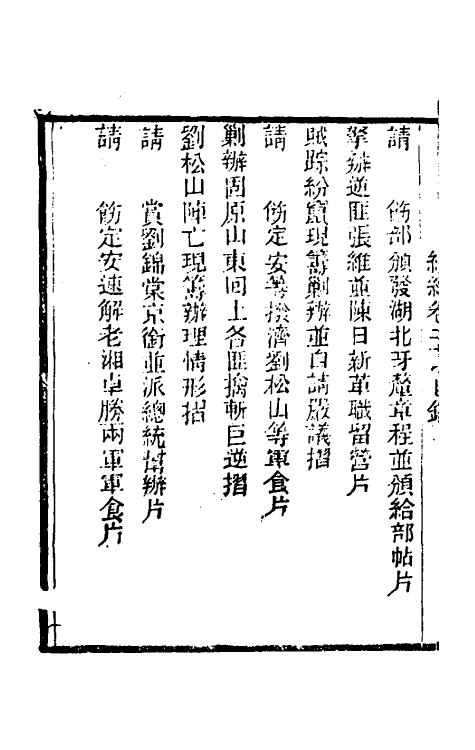 請　飭部頒發湖北牙釐章程並頒給部帖片
拏辦逆匪張維並陳日新革職留營片
賊踪紛竄現籌剿辦並自請嚴議摺
請　飭定安等撥濟劉松山等軍食片
剿辦固原山東回土各匪擒斬巨逆摺
劉松山陣亡現籌辦理情形摺
請　賞劉錦棠京銜並派總統幫辦片
請　飭定安速解老湘卓勝兩軍軍食片